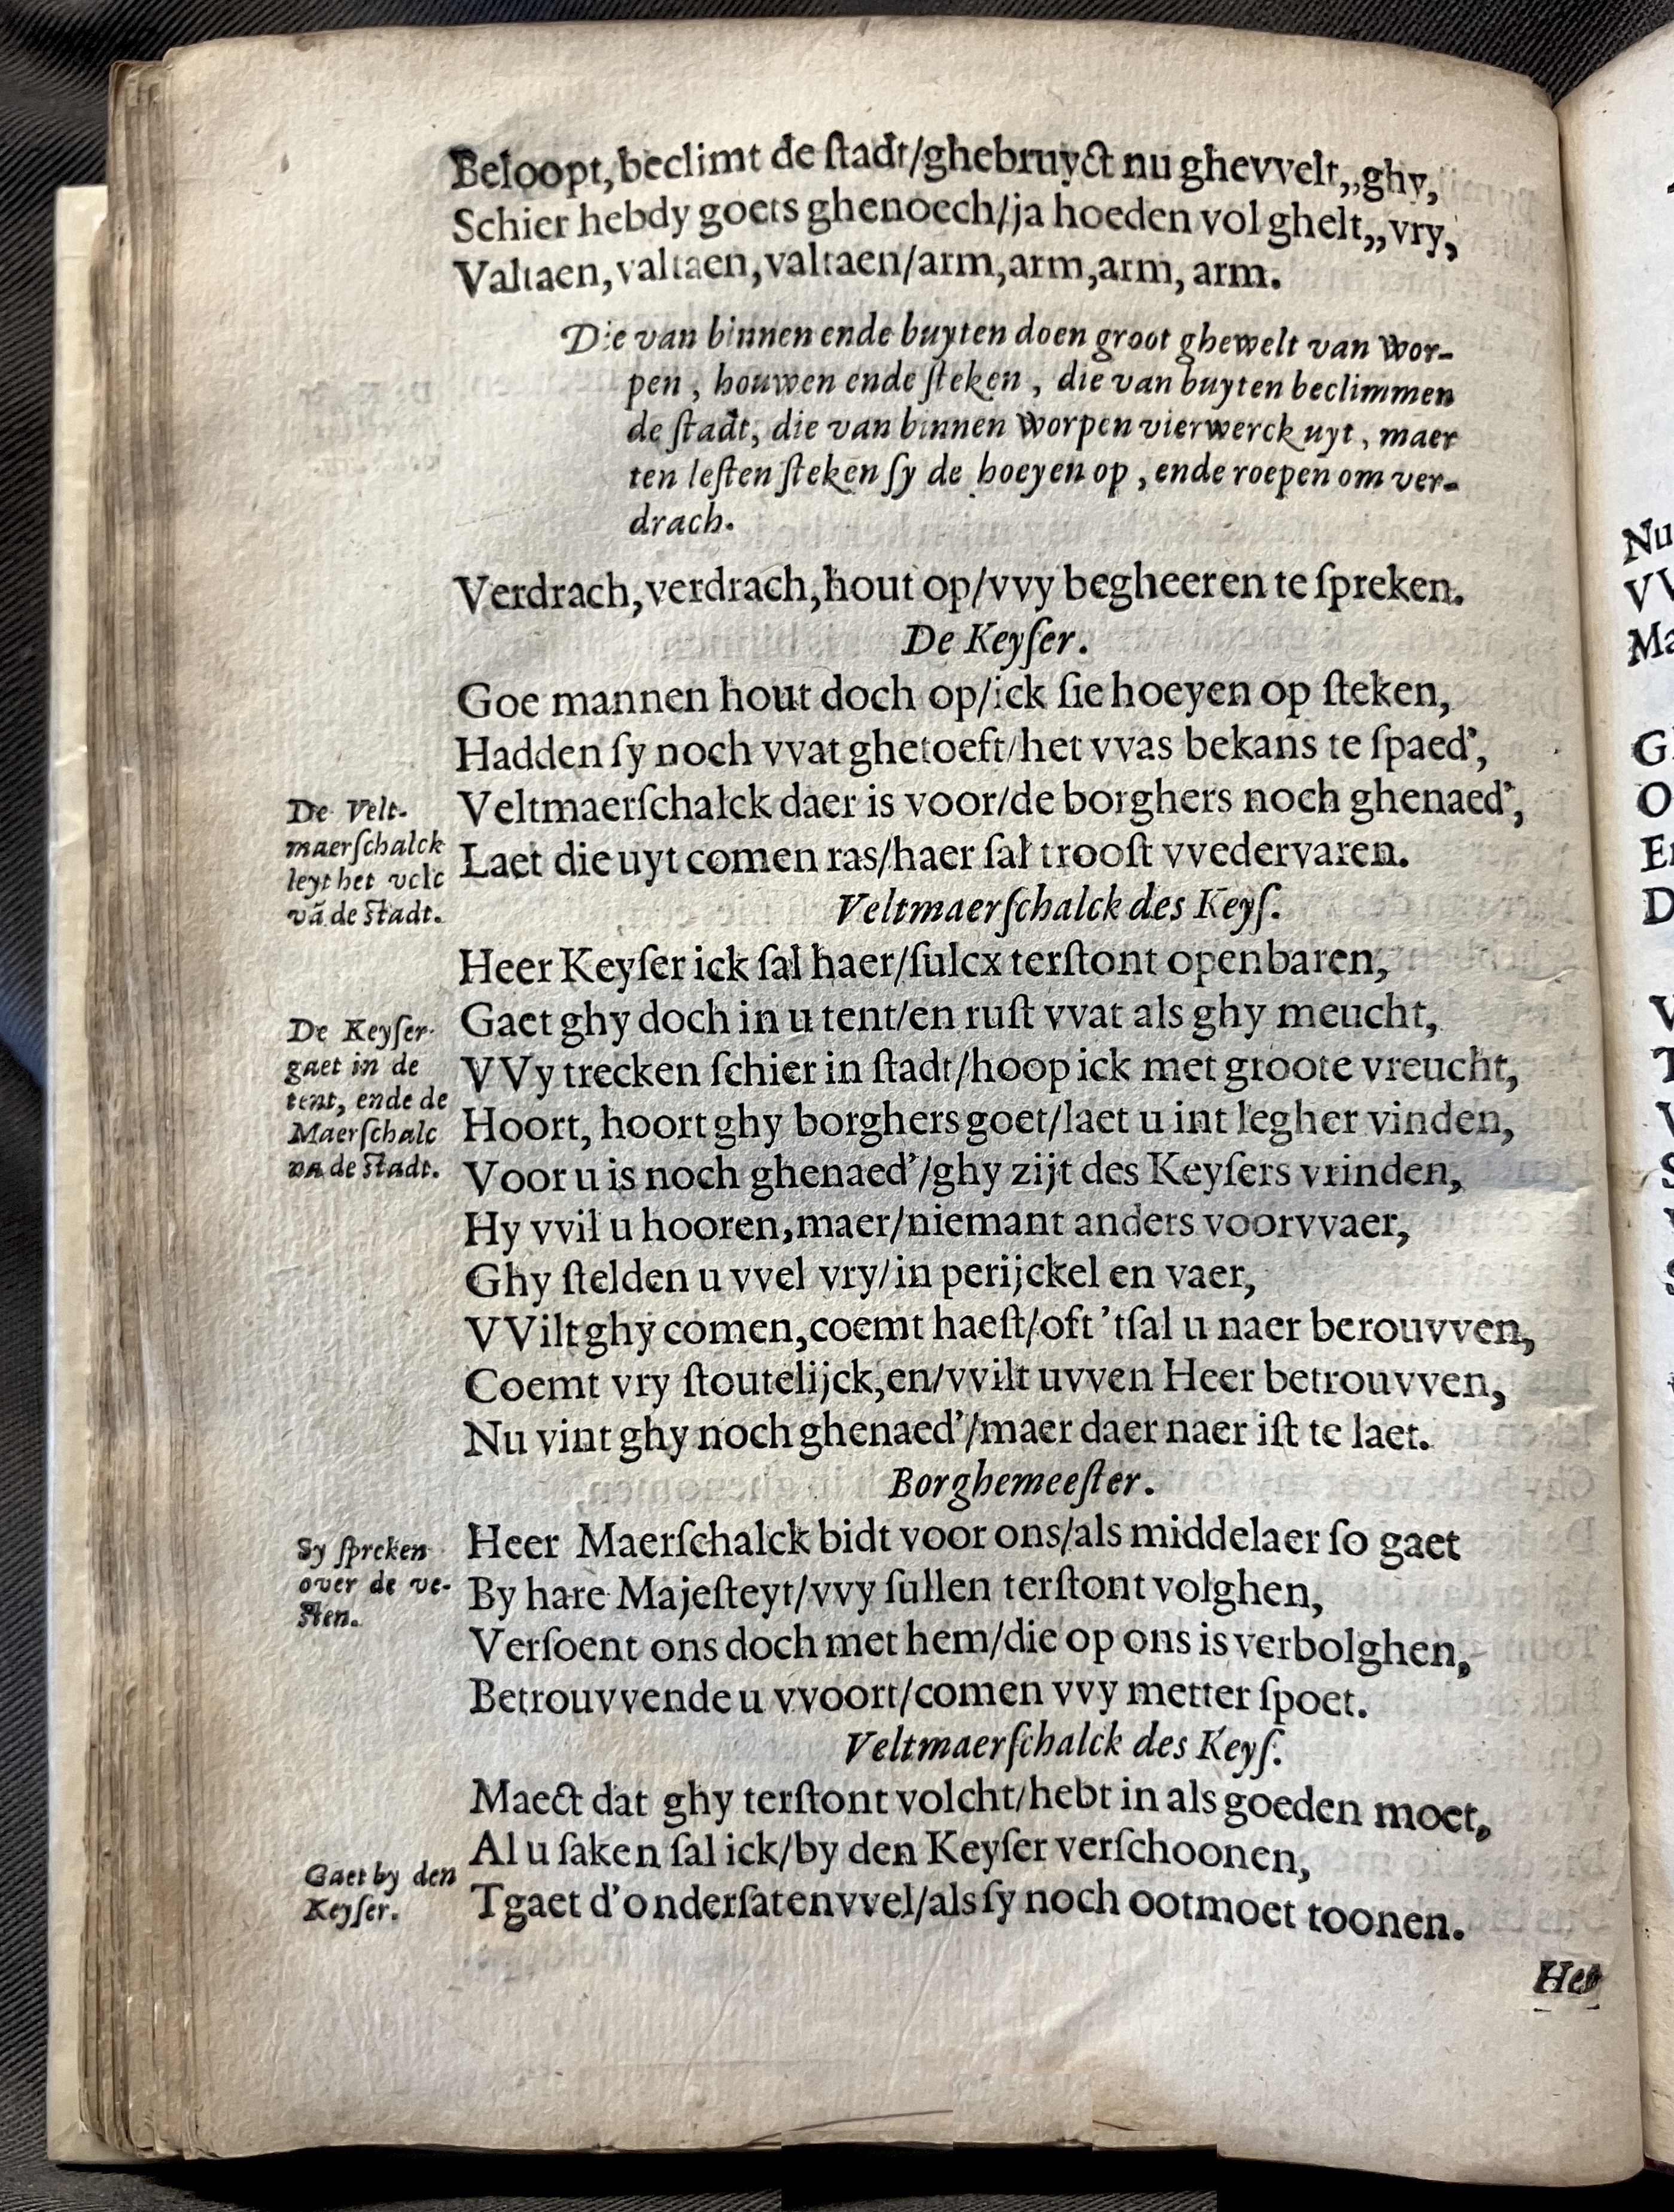 Beloopt, beclimt de ſtadt/ghebruyct nu ghevvelt,,ghy,
Schier hebdy goets ghenoech/ja hoeden vol ghelt,,vry,
Valtaen, valtaen, valtaen/arm, arm, arm, arm.
Die van binnen ende buyten doen groot ghewelt van wor-
pen, houwen ende ſteken, die van buyten beclimmen
de ſtadt, die van binnen worpen vierwerck uyt, maer
ten leſten ſteken ſy de hoeyen op, ende roepen om ver-
drach.
Verdrach, verdrach, hout op/vvy begheeren te ſpreken.
De Keyſer.
Goe mannen hout doch op/ick ſie hoeyen op ſteken,
Hadden ſy noch vvat ghetoeft/het vvas bekans te ſpaed’,
Veltmaerſchalck daer is voor/de borghers noch ghenaed’,
Laet die uyt comen ras/haer ſal trooſt vvedervaren.
De Velt-
maerſchalck
leyt het volc
vā de ſtadt.
Veltmaerſchalck des Keyſ.
Heer Keyſer ick ſal haer/ſulcx terſtont openbaren,
Gaet ghy doch in u tent/en ruſt vvat als ghy meucht,
VVy trecken ſchier in ſtadt/hoop ick met groote vreucht,
Hoort, hoort ghy borghers goet/laet u int legher vinden,
Voor u is noch ghenaed’/ghy zijt des Keyſers vrinden,
De Keyſer
gaet in de
tent, ende de
Maerſchalc
na de ſtadt.
Hy vvil u hooren, maer/niemant anders voorvvaer,
Ghy ſtelden u vvel vry/in perijckel en vaer,
VVilt ghy comen, coemt haeſt/oft ’tſal u naer berouvven,
Coemt vry ſtoutelijck, en/vvilt uvven Heer betrouvven,
Nu vint ghy noch ghenaed’/maer daer naer iſt te laet.
Borghemeeſter.
Heer Maerſchalck bidt voor ons/als middelaer ſo gaet
By hare Majeſteyt/vvy ſullen terſtont volghen,
Verſoent ons doch met hem/die op ons is verbolghen,
Betrouvvende u vvoort/comen vvy metter ſpoet.
Sy ſpreken
over de ve-
ſten.
Veltmaerſchalck des Keyſ.
Maect dat ghy terſtont volcht/hebt in als goeden moet,
Al u ſaken ſal ick/by den Keyſer verſchoonen,
Tgaet d’onderſaten vvel/als ſy noch ootmoet toonen.
Gaet by den
Keyſer.
Het